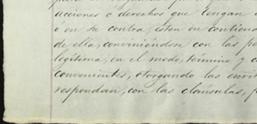 acciones o derechos que tengan
ó en su contra, esten en contienda
de ella, conviniéndose con las
legítima, en el modo, término y
convenientes, otorgando las
respondan, con las cláusulas,